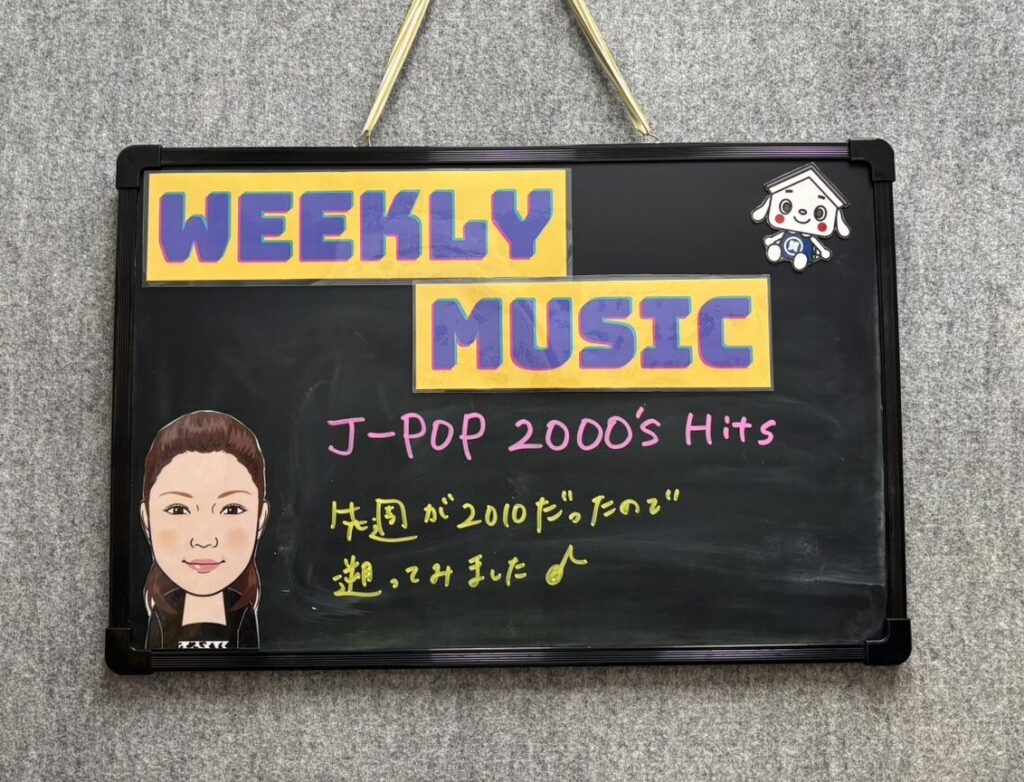 WEEKLY
MUSIC
J-POP 2000's Hits
先週が2010だったので
遡ってみました♪